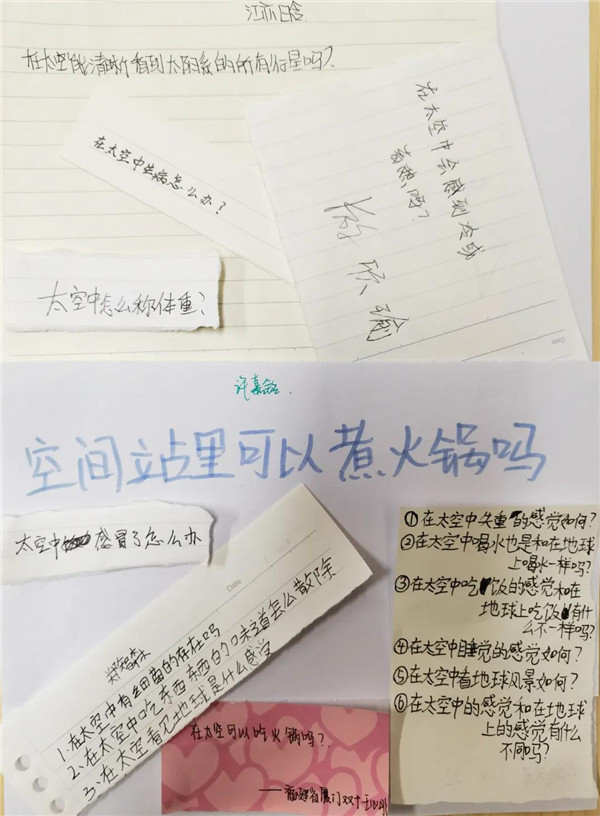 江亦晗
在太空能清晰看到太阳系的所有行星吗?
在太空中生病怎么办?
在太空中会感到冷或
者热,吗?
欣瑜
太空中怎么称体重?
许嘉
空间站里可以煮火锅吗
太空中感冒了怎么办
Date
郑智森
1.在太空中有细菌的存在吗
2.在太空中吃东西东西的口味道怎么散除
3.在太空看见地球是什么感觉
①在太空中失重的感觉如何?
②在太空中喝水也是和在地球
上喝水一样吗?
③在太空中吃饭的感觉和在
地球上吃饭有什
么不一样吗?
④在太空中睡觉的感觉如何?
⑤在太空看地球风景如何?
⑥在太空中的感觉和在地球
上的感觉有什么
不同吗?
在太空可以吃火锅吗?
——福建省厦门双十